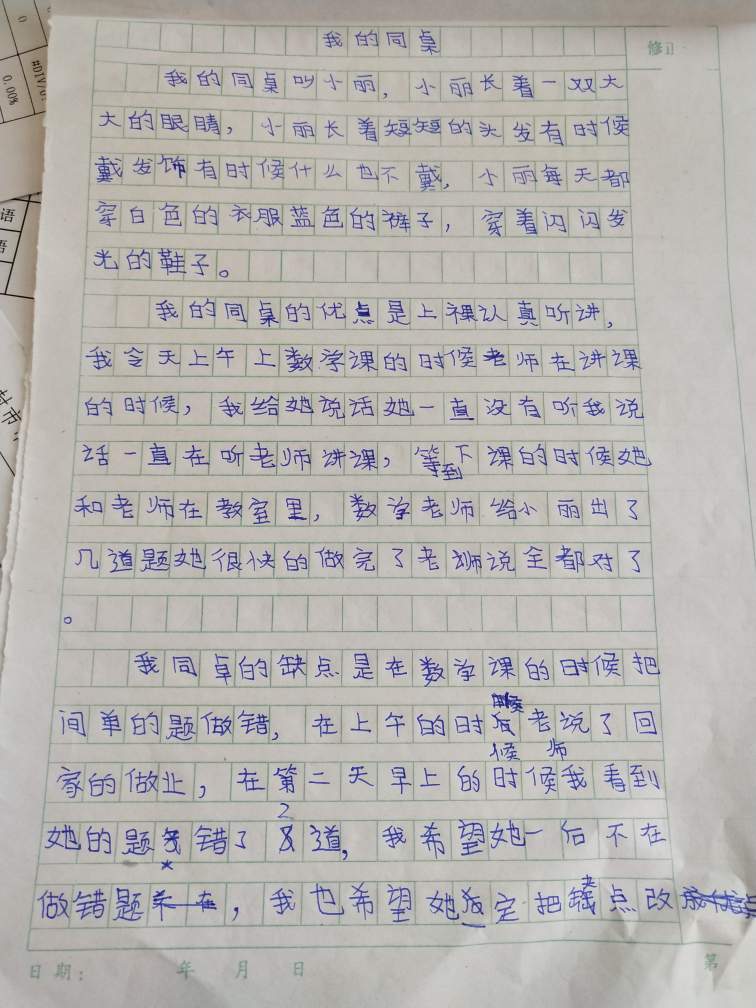 我的同桌
修正
我的同桌叫小丽，小丽长着一双大
大的眼睛，小丽长着短短的头发有时候
戴发饰有时候什么也不戴，小丽每天都
穿白色的衣服蓝色的裤子，穿着闪闪发
光的鞋子。
我的同桌的优点是上课认真听讲，
我今天上午上数学课的时候老师在讲课
的时候，我给她说话她一直没有听我说
话一直在听老师讲课，等到下课的时候她
和老师在教室里，数学老师给小丽出了
几道题她很快的做完了老师说全都对了
。
我同卓的缺点是在数学课的时候把
间单的题做错，在上午的时候老师说了回
家的做业，在第二天早上的时候我看到
她的题错了2道，我希望她一后不在
做错题，我也希望她 定把 点改
日期： 年 月 日
第
#DIV/0!
0.00%
0
语